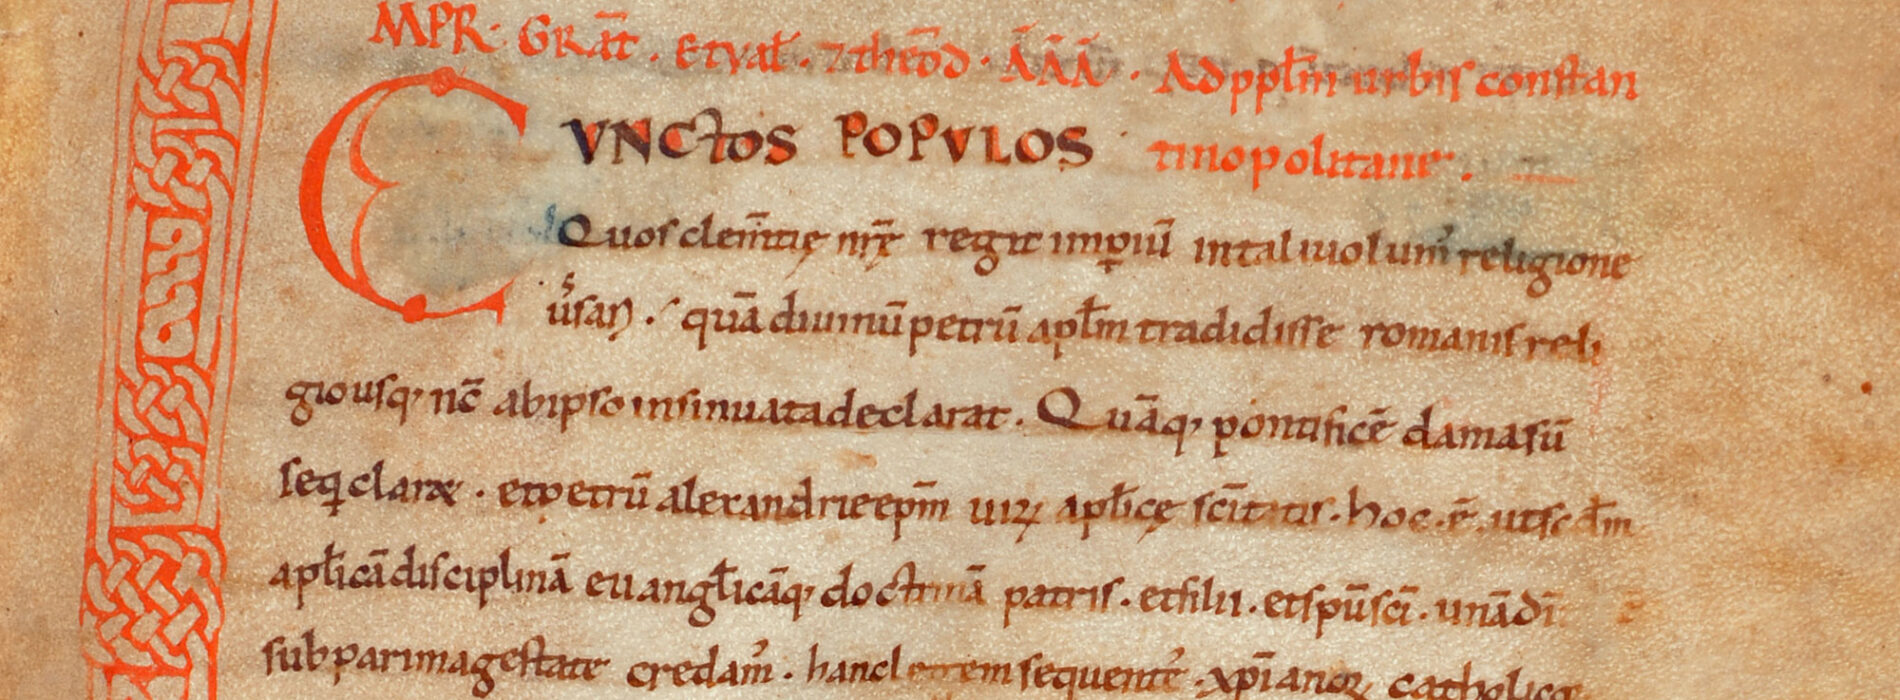 MPR· GRat̄ . Et val̄ . ⁊ theod̄ · ĀĀĀ · Ad ppl̄m urbis constan
CVNCTOS POPVLOS tinopolitane .
Quos clem̄tię nr̄ę regit imp̲iū in tali uolum᷒ religione
u᷒sari . quā diuinū petrū apl̄m tradidisse romanis reli
gio usq; nc̄ ab ipso insinuata declarat . Quāq; pontificē damasū
seq̲ claræ . et petrū alexandrie ep̄m uirū apl̄icę sc̄itatis . hoc . ē . ut sc̄d̄m
apl̄icā disciplinā euangl̄icāq; doctrinā patris . et filii . et sp̄u sc̄i . unā di
sub pari magestate credam᷒ . hanc legem sequente᷒ . xp̄ianoꝝ catholicoꝝ